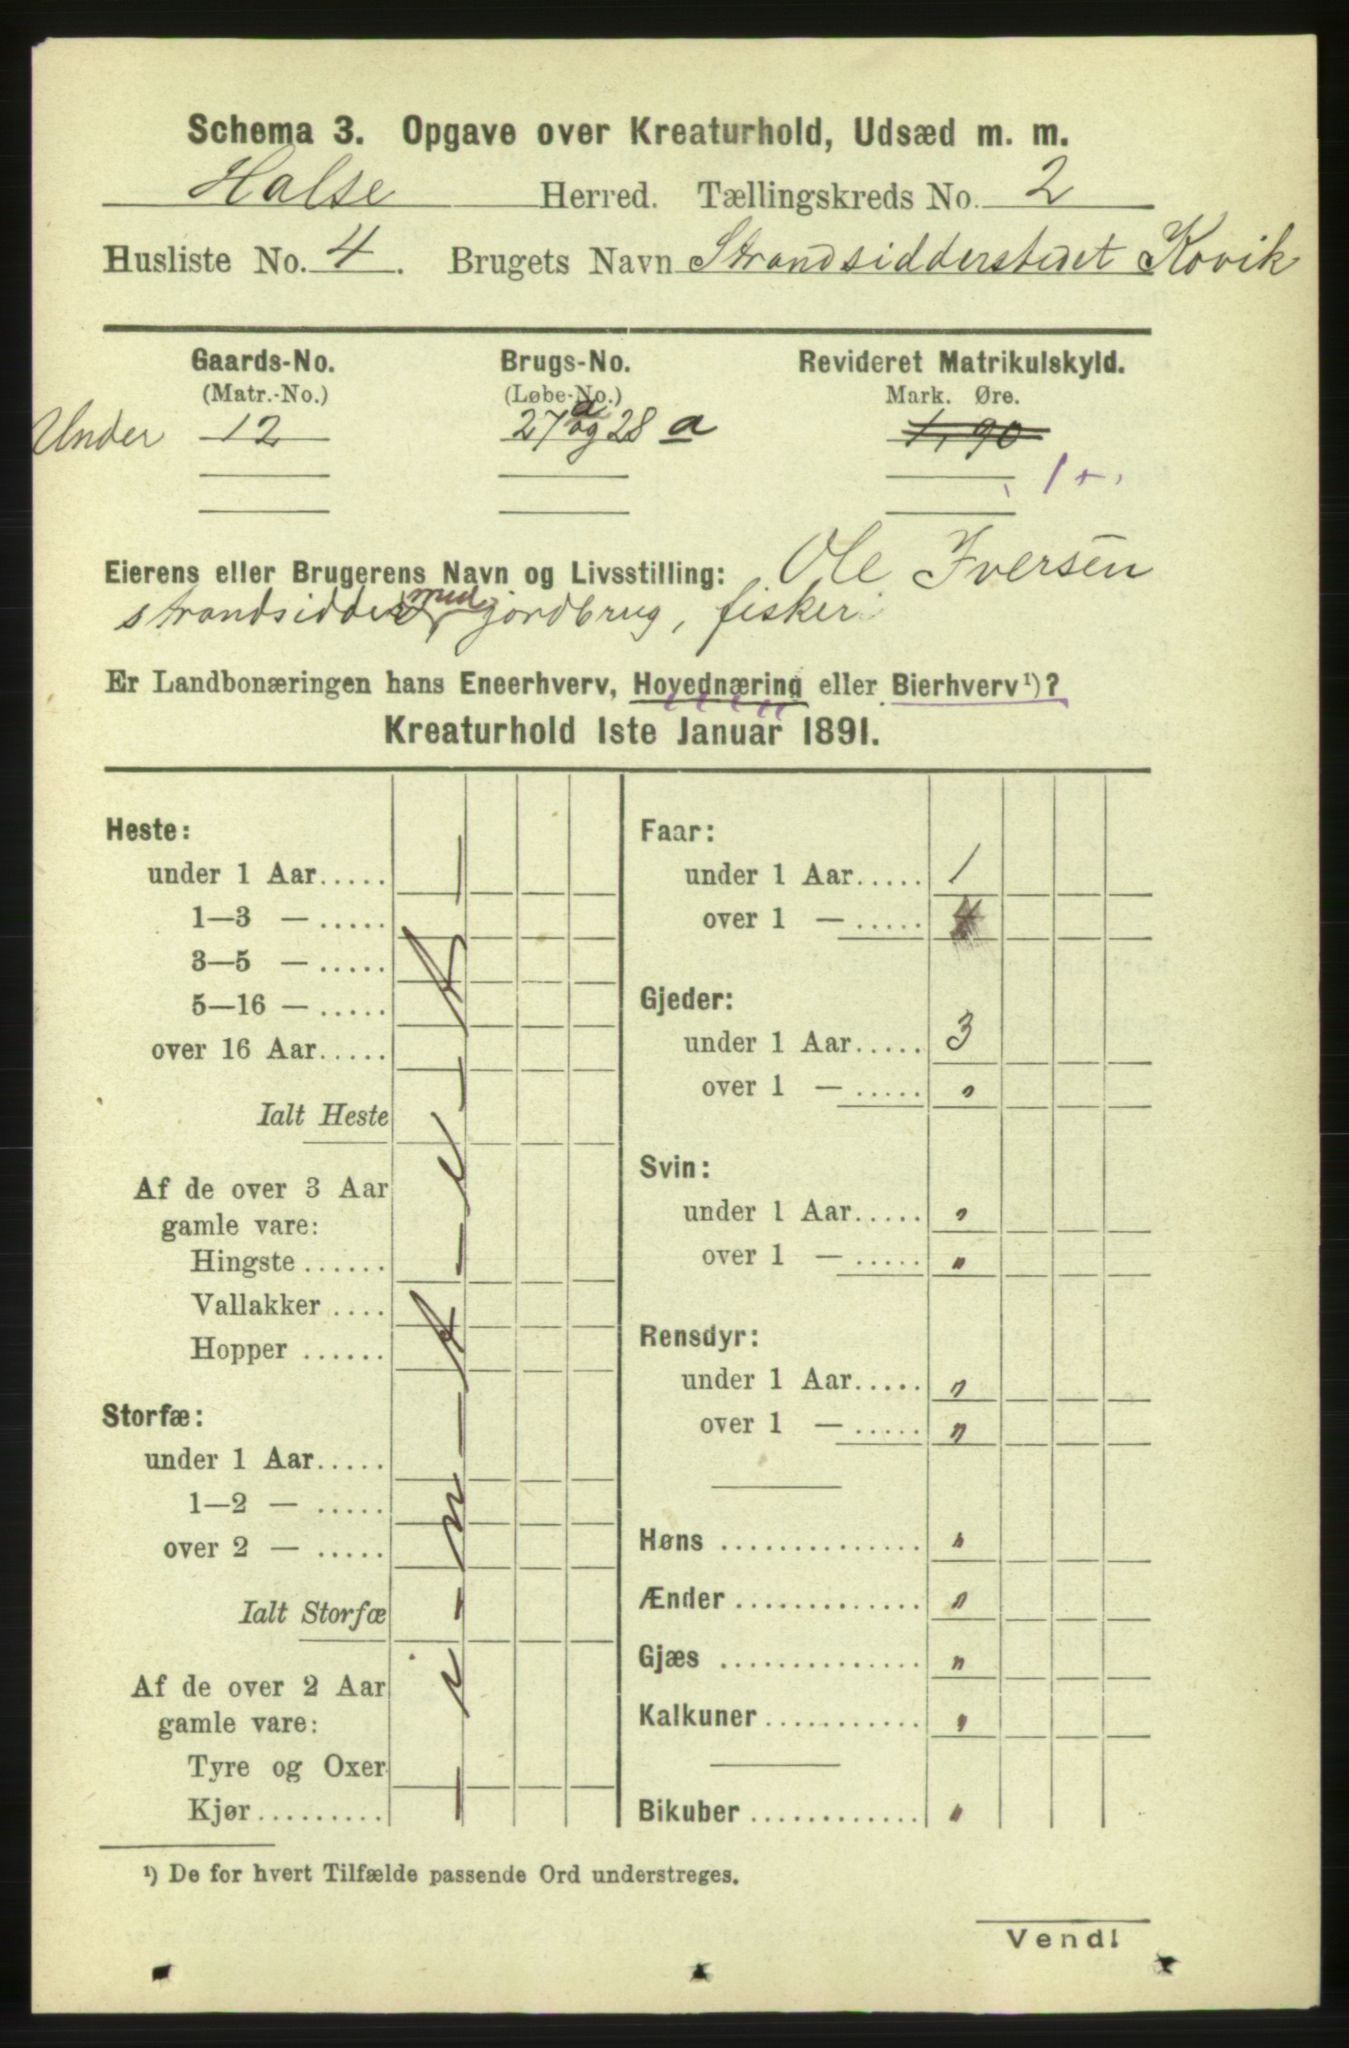 Schema 3. Opgave over Kreaturhold, Udsæd m. m.
Halse Herred. Tællingskreds No. 2
Husliste No. 4. Brugets Navn Strandsidderstedet Kovik
Gaards-No. Brugs-No. Revideret Matrikulskyld.
(Matr.-No.) (Løbe-No.) Mark. Øre.
Under 12 27 a og 28 a 1,90
Eierens eller Brugerens Navn og Livsstilling: Ole Iversen
strandsidder med jordbrug, fisker
Er Landbonæringen hans Eneerhverv, Hovednæring eller Bierhverv¹)?
Kreaturhold 1ste Januar 1891.
Heste:
under 1 Aar.....
1—3 — .....
3—5 — .....
5—16 — .....
over 16 Aar.....
Ialt Heste
Af de over 3 Aar
gamle vare:
Hingste ......
Vallakker ....
Hopper ......
Storfæ:
under 1 Aar.....
1—2 — .....
over 2 — .....
Ialt Storfæ
Af de over 2 Aar
gamle vare:
Tyre og Oxer
Kjør.........
Faar:
under 1 Aar..... 1
over 1 — .....
Gjeder:
under 1 Aar..... 3
over 1 — ..... "
Svin:
under 1 Aar..... "
over 1 — ..... "
Rensdyr:
under 1 Aar..... "
over 1 — ..... "
Høns .............. "
Ænder ............. "
Gjæs .............. "
Kalkuner........... "
Bikuber ............. "
¹) De for hvert Tilfælde passende Ord understreges.
Vend!